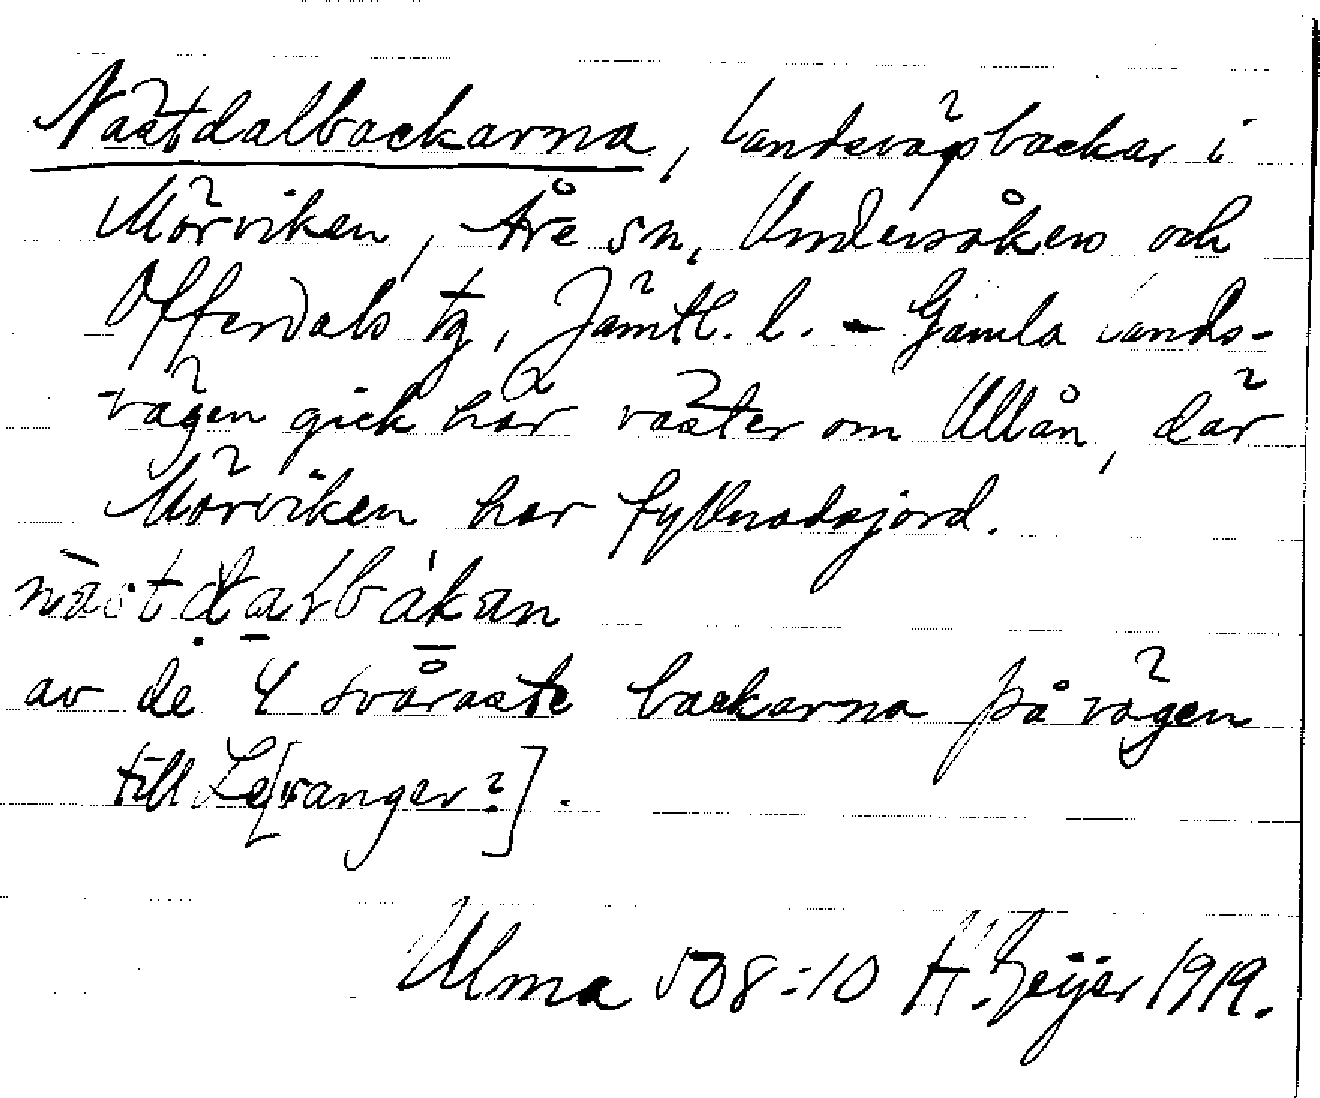 Nästdalbackarna, landsvägsbackar i
Mörviken, Åre sn, Undersåkers och
Offerdals tg, Jämtl. l. - Gamla lands-
vägen gick här väster om Ullån, där
Mörviken har fyllnadsjord.
nästdalbákan
av de 4 svåraste backarna på vägen
till Le[vanger?].
Ulma 508:10 H. Geijer 1919.